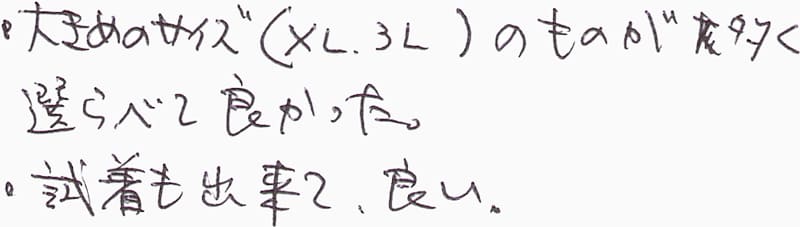 ・大きめのサイズ(XL.3L)のものが多く
選らべて良かった。
・試着も出来て、良い。